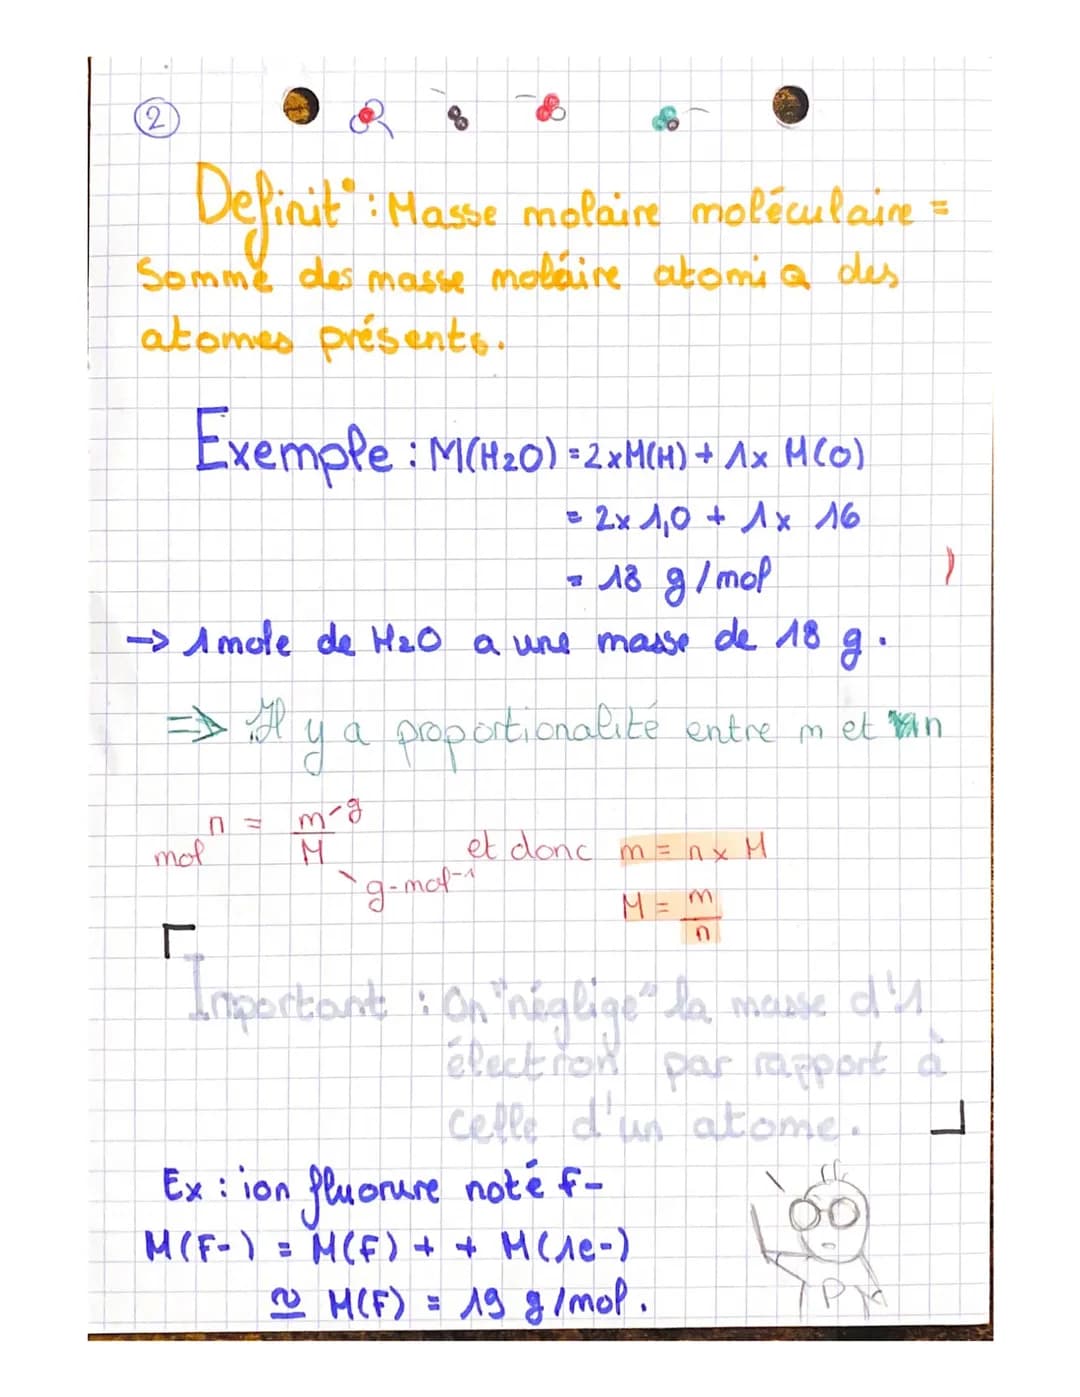 2
Definit° : Masse molaire moléculaire =
Somme des masse molaire atomiq des
atomes présents.
Exemple : M(H2O) = 2xM(H) + 1x M(O)
= 2x 1,0 + 1x 16
= 18 g/mol
-> 1 mole de H2O a une masse de 18 g.
=> Il y a proportionalité entre m et n
n = m/M
mol
g
g-mol-1
et donc m = n x M
M = m/n
Important : On "néglige" la masse d'1
électron par rapport à
celle d'un atome.
Ex : ion fluorure noté F-
M(F-) = M(F) + + M(1e-)
≃ M(F) = 19 g/mol.